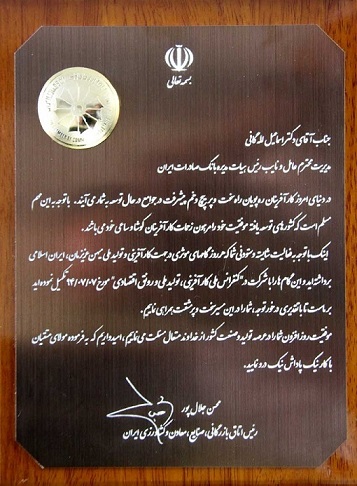 بسمه تعالی
جناب آقای دکتر اسماعیل لله گانی
مدیریت محترم عامل و نایب رئیس هیات مدیره بانک صادرات ایران
در دنیای امروز کارآفرینان ره پویان راه سخت و پرپیچ و خم پیشرفت در جوامع در حال توسعه به شمار می آیند. با توجه به این مهم
مسلم است که کشورهای توسعه یافته موفقیت خود را مرهون زحمات کارآفرینان کوشا و ساعی خود می باشد.
اینک با توجه به فعالیت شایسته و ستودنی شما که هر روز گامهای موثری در جهت کارآفرینی و تولید ملی میهن عزیزمان، ایران اسلامی
برداشته اید و این گام ها را با شرکت در "کنفرانس ملی کارآفرینی، تولید ملی و رونق اقتصادی" مورخ ۹۴/۰۷/۰۷ تکمیل نموده اید
بر ماست تا با تقدیری در خور توجه، شما را در این مسیر سخت و پرمشقت همراهی نماییم.
موفقیت روز افزون شما را در عرصه تولید و صنعت کشور از خداوند متعال مسئلت می نماییم، امید واریم که به فرموده مولای متقیان
با کار نیک پاداش نیک دروнمایید.
محسن جلال پور
رئیس اتاق بازرگانی، صنایع، معادن و کشاورزی ایران